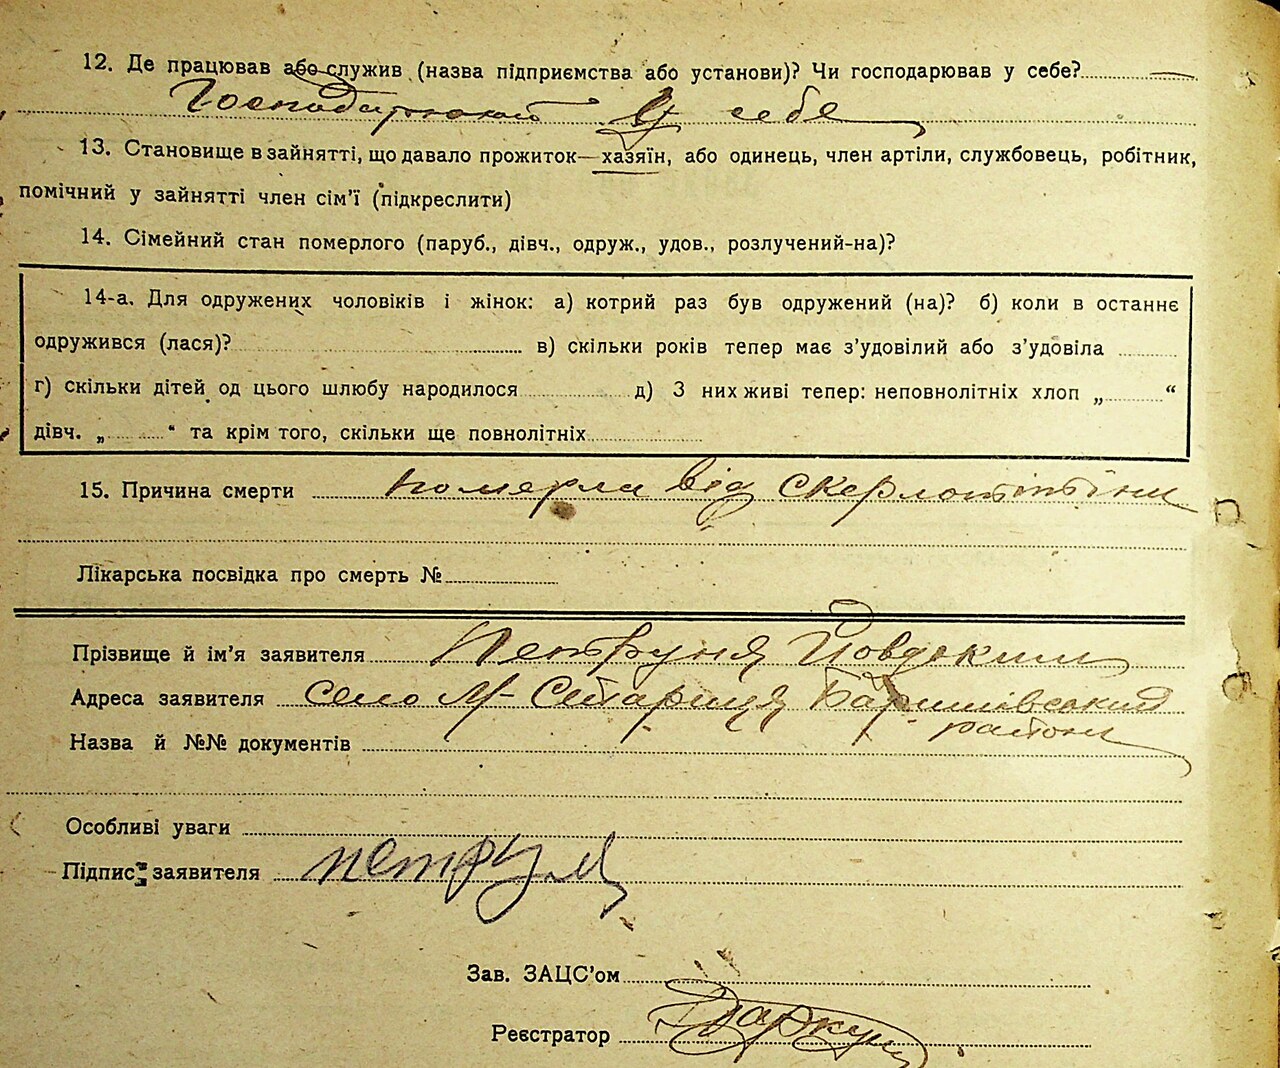 12. Де працював або служив (назва підприємства або установи)? Чи господарював у себе?
Господарював у себе
13. Становище в зайнятті, що давало прожиток—хазяїн, або одинець, член артіли, службовець, робітник,
помічний у зайнятті член сім'ї (підкреслити)
14. Сімейний стан померлого (паруб., дівч., одруж., удов., розлучений-на)?
14-а. Для одружених чоловіків і жінок: а) котрий раз був одружений (на)? б) коли в останнє
одружився (лася)? в) скільки років тепер має з'удовілий або з'удовіла
г) скільки дітей од цього шлюбу народилося д) З них живі тепер: неповнолітніх хлоп „ “
дівч. „ “ та крім того, скільки ще повнолітніх
15. Причина смерти померла від
Лікарська посвідка про смерть №
Прізвище й ім'я заявителя Петруня Йовдоким
Адреса заявителя село М-Стариця Баришівський
району
Назва й №№ документів
Особливі уваги
Підпис заявителя
Зав. ЗАЦС'ом
Реєстратор